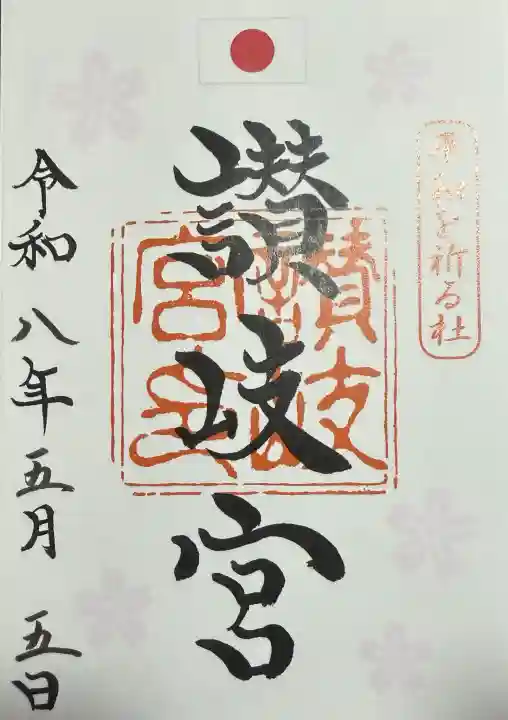 平和を祈る社
讃岐宮
令和八年五月五日